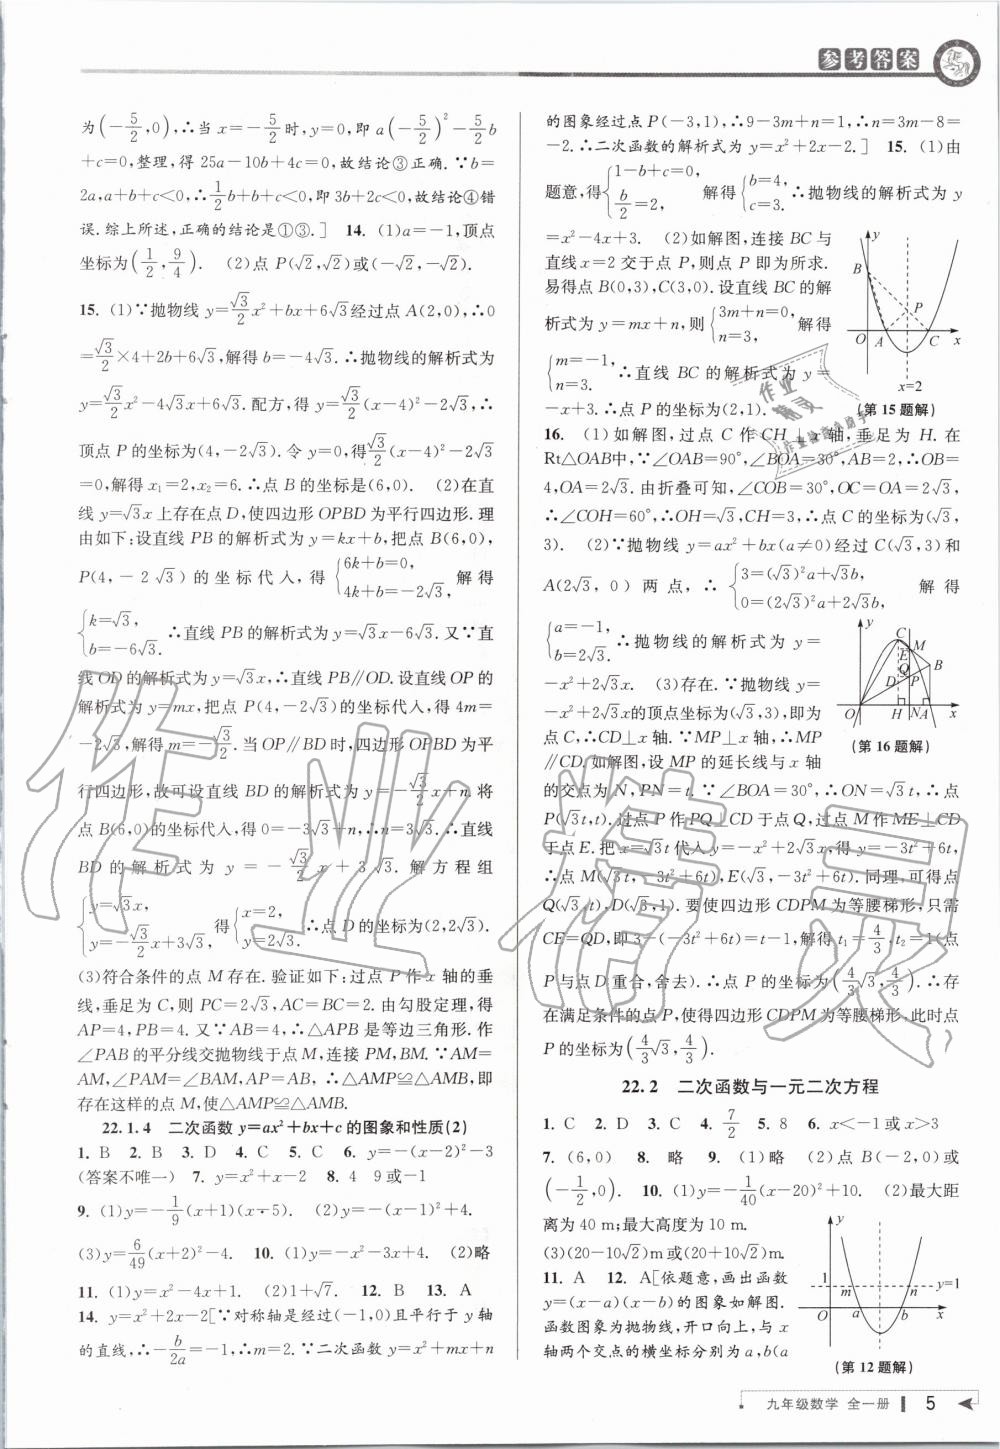 参考答案
为(-5/2,0),∴当 x=-5/2时,y=0,即 a(-5/2)²-5/2b
+c=0,整理,得 25a-10b+4c=0,故结论③正确.∵b=
2a,a+b+c<0,∴1/2b+b+c<0,即 3b+2c<0,故结论④错
误.综上所述,正确的结论是①③.] 14. (1)a=-1,顶点
坐标为(1/2,9/4). (2)点 P(√2,√2)或(-√2,-√2).
15. (1)∵抛物线 y=√3/2x²+bx+6√3经过点 A(2,0),∴0
=√3/2×4+2b+6√3,解得 b=-4√3.∴抛物线的解析式为
y=√3/2x²-4√3x+6√3.配方,得 y=√3/2(x-4)²-2√3,∴
顶点 P 的坐标为(4,-2√3).令 y=0,得√3/2(x-4)²-2√3
=0,解得 x₁=2,x₂=6.∴点 B 的坐标是(6,0). (2)在直
线 y=√3x 上存在点 D,使四边形 OPBD 为平行四边形.理
由如下:设直线 PB 的解析式为 y=kx+b,把点 B(6,0),
P(4,-2√3)的坐标代入,得{6k+b=0, 4k+b=-2√3, 解得
{k=√3, b=-6√3. ∴直线 PB 的解析式为 y=√3x-6√3.又∵直
线 OD 的解析式为 y=√3x,∴直线 PB∥OD.设直线 OP 的
解析式为 y=mx,把点 P(4,-2√3)的坐标代入,得 4m=
-2√3,解得 m=-√3/2.当 OP∥BD 时,四边形 OPBD 为平
行四边形,故可设直线 BD 的解析式为 y=-√3/2x+n.将
点 B(6,0)的坐标代入,得 0=-3√3+n,∴n=3√3.∴直线
BD 的解析式为 y=-√3/2x+3√3.解方程组
{y=√3x, y=-√3/2x+3√3, 得{x=2, y=2√3. ∴点 D 的坐标为(2,2√3).
(3)符合条件的点 M 存在.验证如下:过点 P 作 x 轴的垂
线,垂足为 C,则 PC=2√3,AC=BC=2.由勾股定理,得
AP=4,PB=4.又∵AB=4,∴△APB 是等边三角形.作
∠PAB 的平分线交抛物线于点 M,连接 PM,BM.∵AM=
AM,∠PAM=∠BAM,AP=AB,∴△AMP≌△AMB,即
存在这样的点 M,使△AMP≌△AMB.
22.1.4 二次函数 y=ax²+bx+c 的图象和性质(2)
1. B 2. B 3. D 4. C 5. C 6. y=-(x-2)²-3
(答案不唯一) 7. y=x²+x-2 8. 4 9 或-1
9. (1)y=-1/9(x+1)(x-5). (2)y=-2x²+4.
(3)y=6/49(x+2)²-4. 10. (1)y=-x²-3x+4. (2)略
11. (1)y=x²-4x+1. (2)1+√7. 12. B 13. A
14. y=x²+2x-2[∵对称轴是经过(-1,0)且平行于 y 轴
的直线,∴-b/2a=-1,∴m=2.∵二次函数 y=x²+mx+n
的图象经过点 P(-3,1),∴9-3m+n=1,∴n=3m-8=
-2.∴二次函数的解析式为 y=x²+2x-2.] 15. (1)由
题意,得{1-b+c=0, b/2=2, 解得{b=4, c=3. ∴抛物线的解析式为 y
=x²-4x+3. (2)如解图,连接 BC 与
直线 x=2 交于点 P,则点 P 即为所求.
易得点 B(0,3),C(3,0).设直线 BC 的解
析式为 y=mx+n,则{3m+n=0, n=3, 解得
{m=-1, n=3. ∴直线 BC 的解析式为 y=
-x+3.∴点 P 的坐标为(2,1).
y
B
P
O A C x
x=2
(第 15 题解)
16. (1)如解图,过点 C 作 CH⊥x 轴,垂足为 H.在
Rt△OAB中,∵∠OAB=90°,∠BOA=30°,AB=2,∴OB=
4,OA=2√3.由折叠可知,∠COB=30°,OC=OA=2√3,
∴∠COH=60°,∴OH=√3,CH=3,∴点 C 的坐标为(√3,
3). (2)∵抛物线 y=ax²+bx(a≠0)经过 C(√3,3)和
A(2√3,0)两点,∴{3=(√3)²a+√3b, 0=(2√3)²a+2√3b, 解得
{a=-1, b=2√3. ∴抛物线的解析式为 y=
-x²+2√3x. (3)存在.∵抛物线 y=
-x²+2√3x的顶点坐标为(√3,3),即为
点 C,∴CD⊥x 轴.∵MP⊥x 轴,∴MP
∥CD.如解图,设 MP 的延长线与 x 轴
y
C
M
E
Q
B
D P
O H N A x
(第 16 题解)
的交点为 N,PN=t.∵∠BOA=30°,∴ON=√3t,∴点
P(√3t,t).过点 P 作 PQ⊥CD 于点 Q,过点 M 作 ME⊥CD
于点 E.把 x=√3t 代入 y=-x²+2√3x,得 y=-3t²+6t,
∴点 M(√3t,-3t²+6t),E(√3,-3t²+6t).同理,可得点
Q(√3,t),D(√3,1).要使四边形 CDPM 为等腰梯形,只需
CE=QD,即 3-(-3t²+6t)=t-1,解得 t₁=4/3,t₂=1(点
P 与点 D 重合,舍去).∴点 P 的坐标为(4/3√3,4/3).∴存
在满足条件的点 P,使得四边形 CDPM 为等腰梯形,此时点
P 的坐标为(4/3√3,4/3).
22.2 二次函数与一元二次方程
1. C 2. D 3. C 4. 7/2 5. 8 6. x<-1 或 x>3
7. (6,0) 8. 略 9. (1)略 (2)点 B(-2,0)或
(-1/2,0). 10. (1)y=-1/40(x-20)²+10. (2)最大距
离为 40 m;最大高度为 10 m.
(3)(20-10√2)m或(20+10√2)m.
11. A 12. A[依题意,画出函数
y=(x-a)(x-b)的图象如解图.
函数图象为抛物线,开口向上,与 x
轴两个交点的横坐标分别为 a,b(a
y
1 m n y=1
O a b x
(第 12 题解)
九年级数学 全一册 5
作业精灵